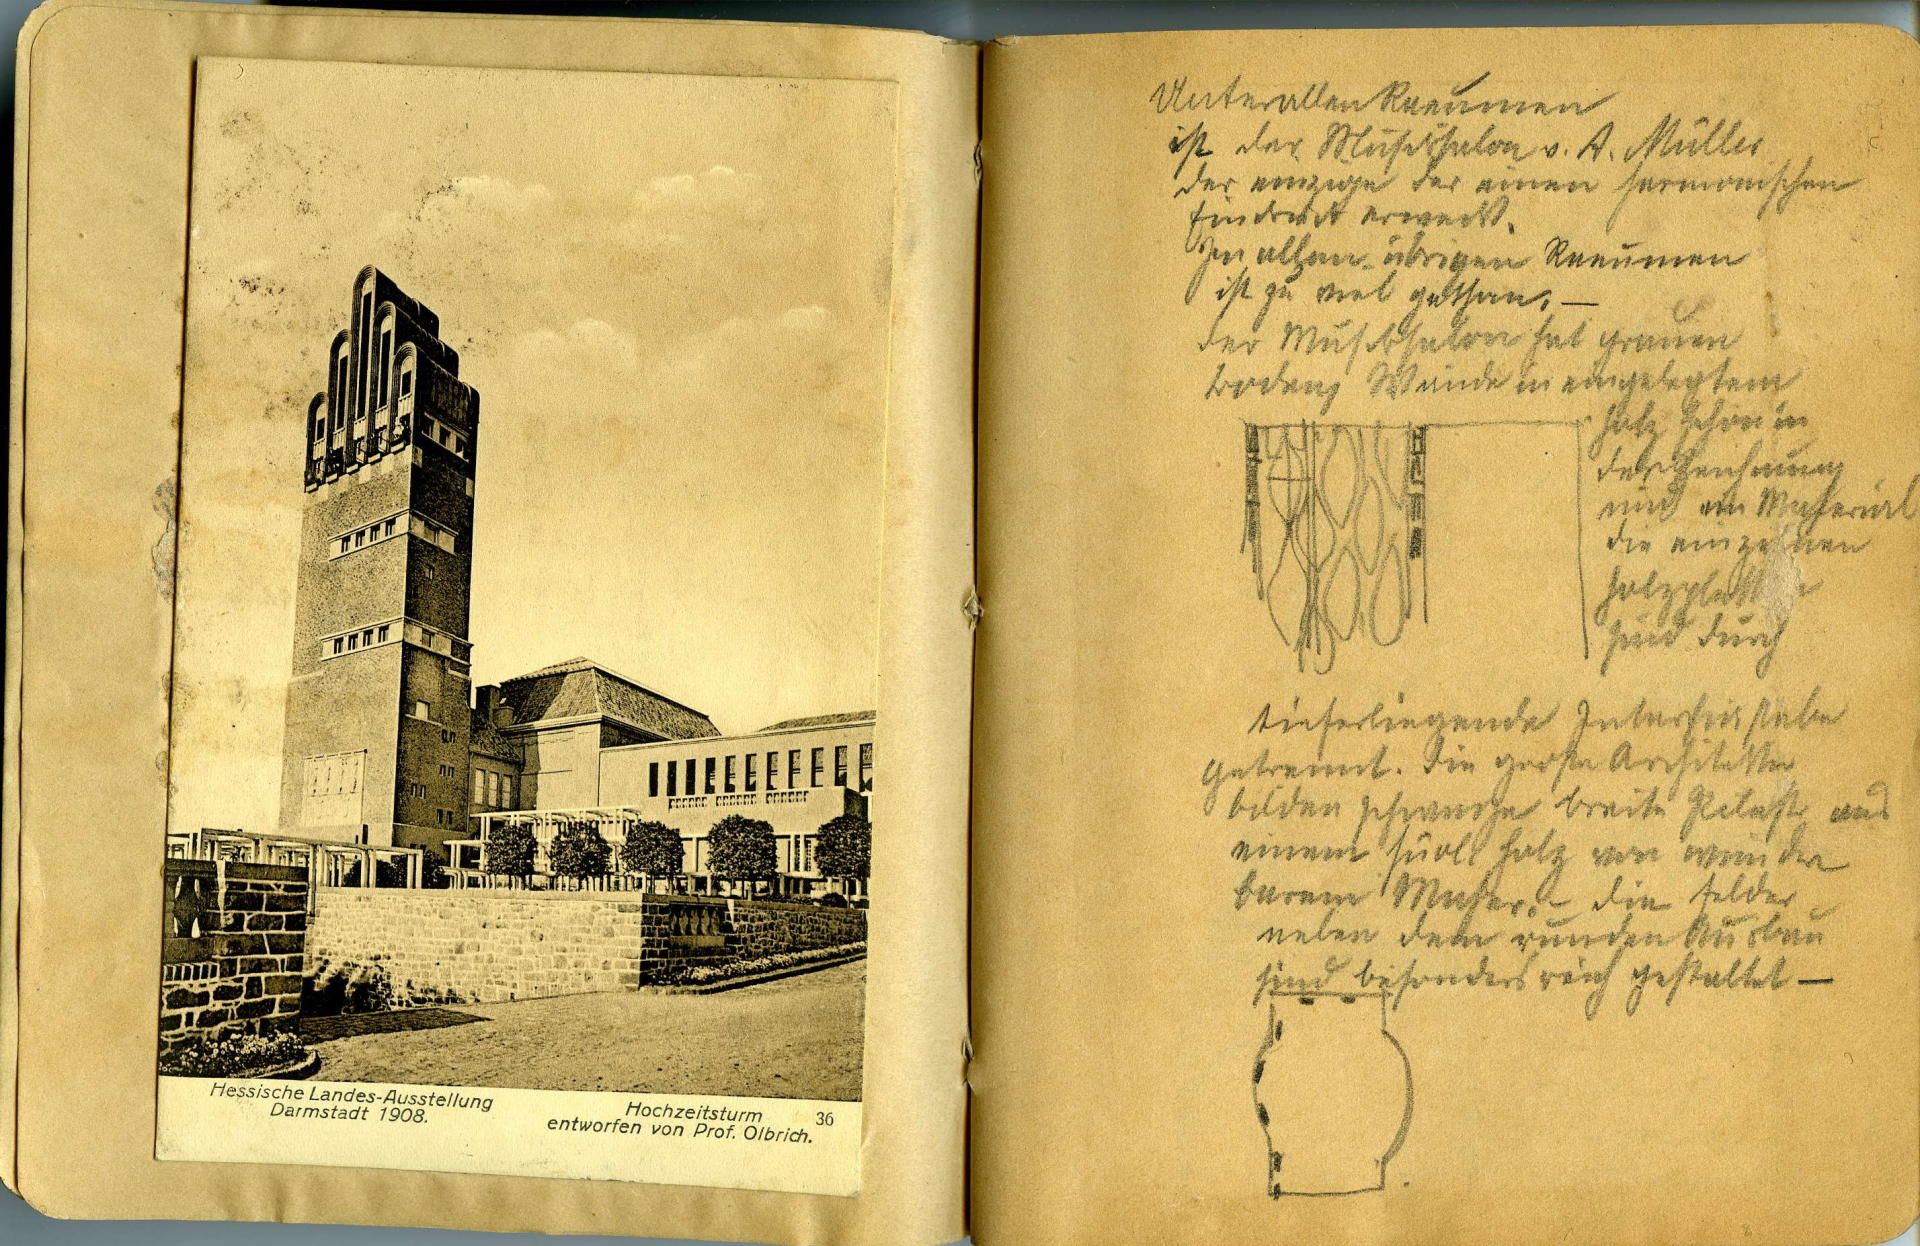 Hessische Landes-Ausstellung
Darmstadt 1908.
Hochzeitsturm
entworfen von Prof. Olbrich.
36
Unter allen Raeumen
ist der Musiksalon v. A. Müller
der einzige der einen harmonischen
Eindruck erweckt.
In allen übrigen Raeumen
ist zu viel gethan. —
der Musiksalon hat grauen
Boden, Wände in eingelegtem
Holz schön in
der Zeichnung
und im Material
die einzelnen
Holzplatten
sind durch
tieferliegende Intarsiastäbe
getrennt. die große Architektur
bilden schwarze breite Pilaster aus
einem Holz von wunder
barem Maser. – die Felder
neben dem runden Ausbau
sind besonders reich gestaltet —